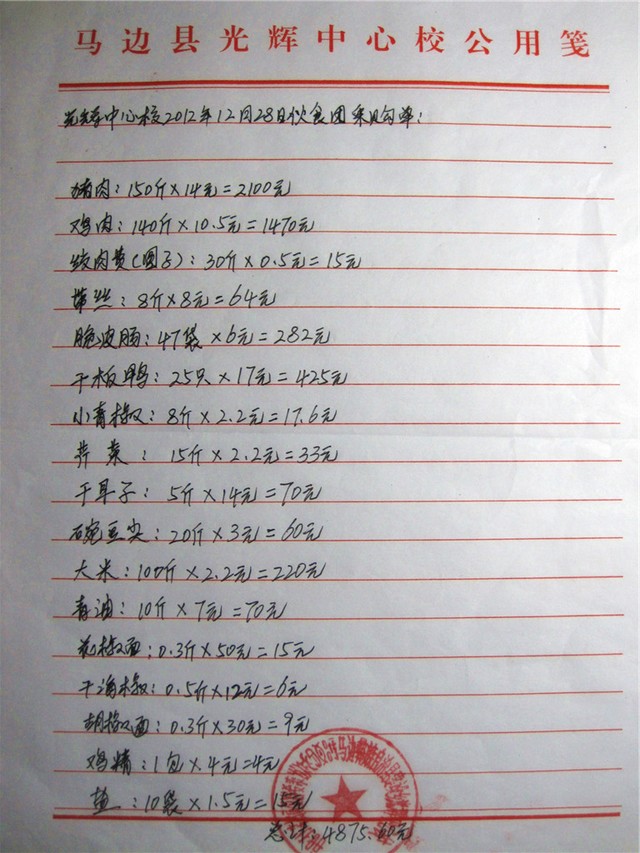 马边县光辉中心校公用笺
光辉中心校2012年12月28日伙食团采购单:
猪肉:150斤×14元=2100元
鸡肉:140斤×10.5元=1470元
绞肉费(圆子):30斤×0.5元=15元
带丝:8斤×8元=64元
脆皮肠:47袋×6元=282元
干板鸭:25只×17元=425元
小青椒:8斤×2.2元=17.6元
芹菜:15斤×2.2元=33元
干耳子:5斤×14元=70元
豌豆尖:20斤×3元=60元
大米:100斤×2.2元=220元
青油:10斤×7元=70元
花椒面:0.3斤×50元=15元
干海椒:0.5斤×12元=6元
胡椒面:0.3斤×30元=9元
鸡精:1包×4元=4元
盐:10袋×1.5元=15元
总计:4875.60元